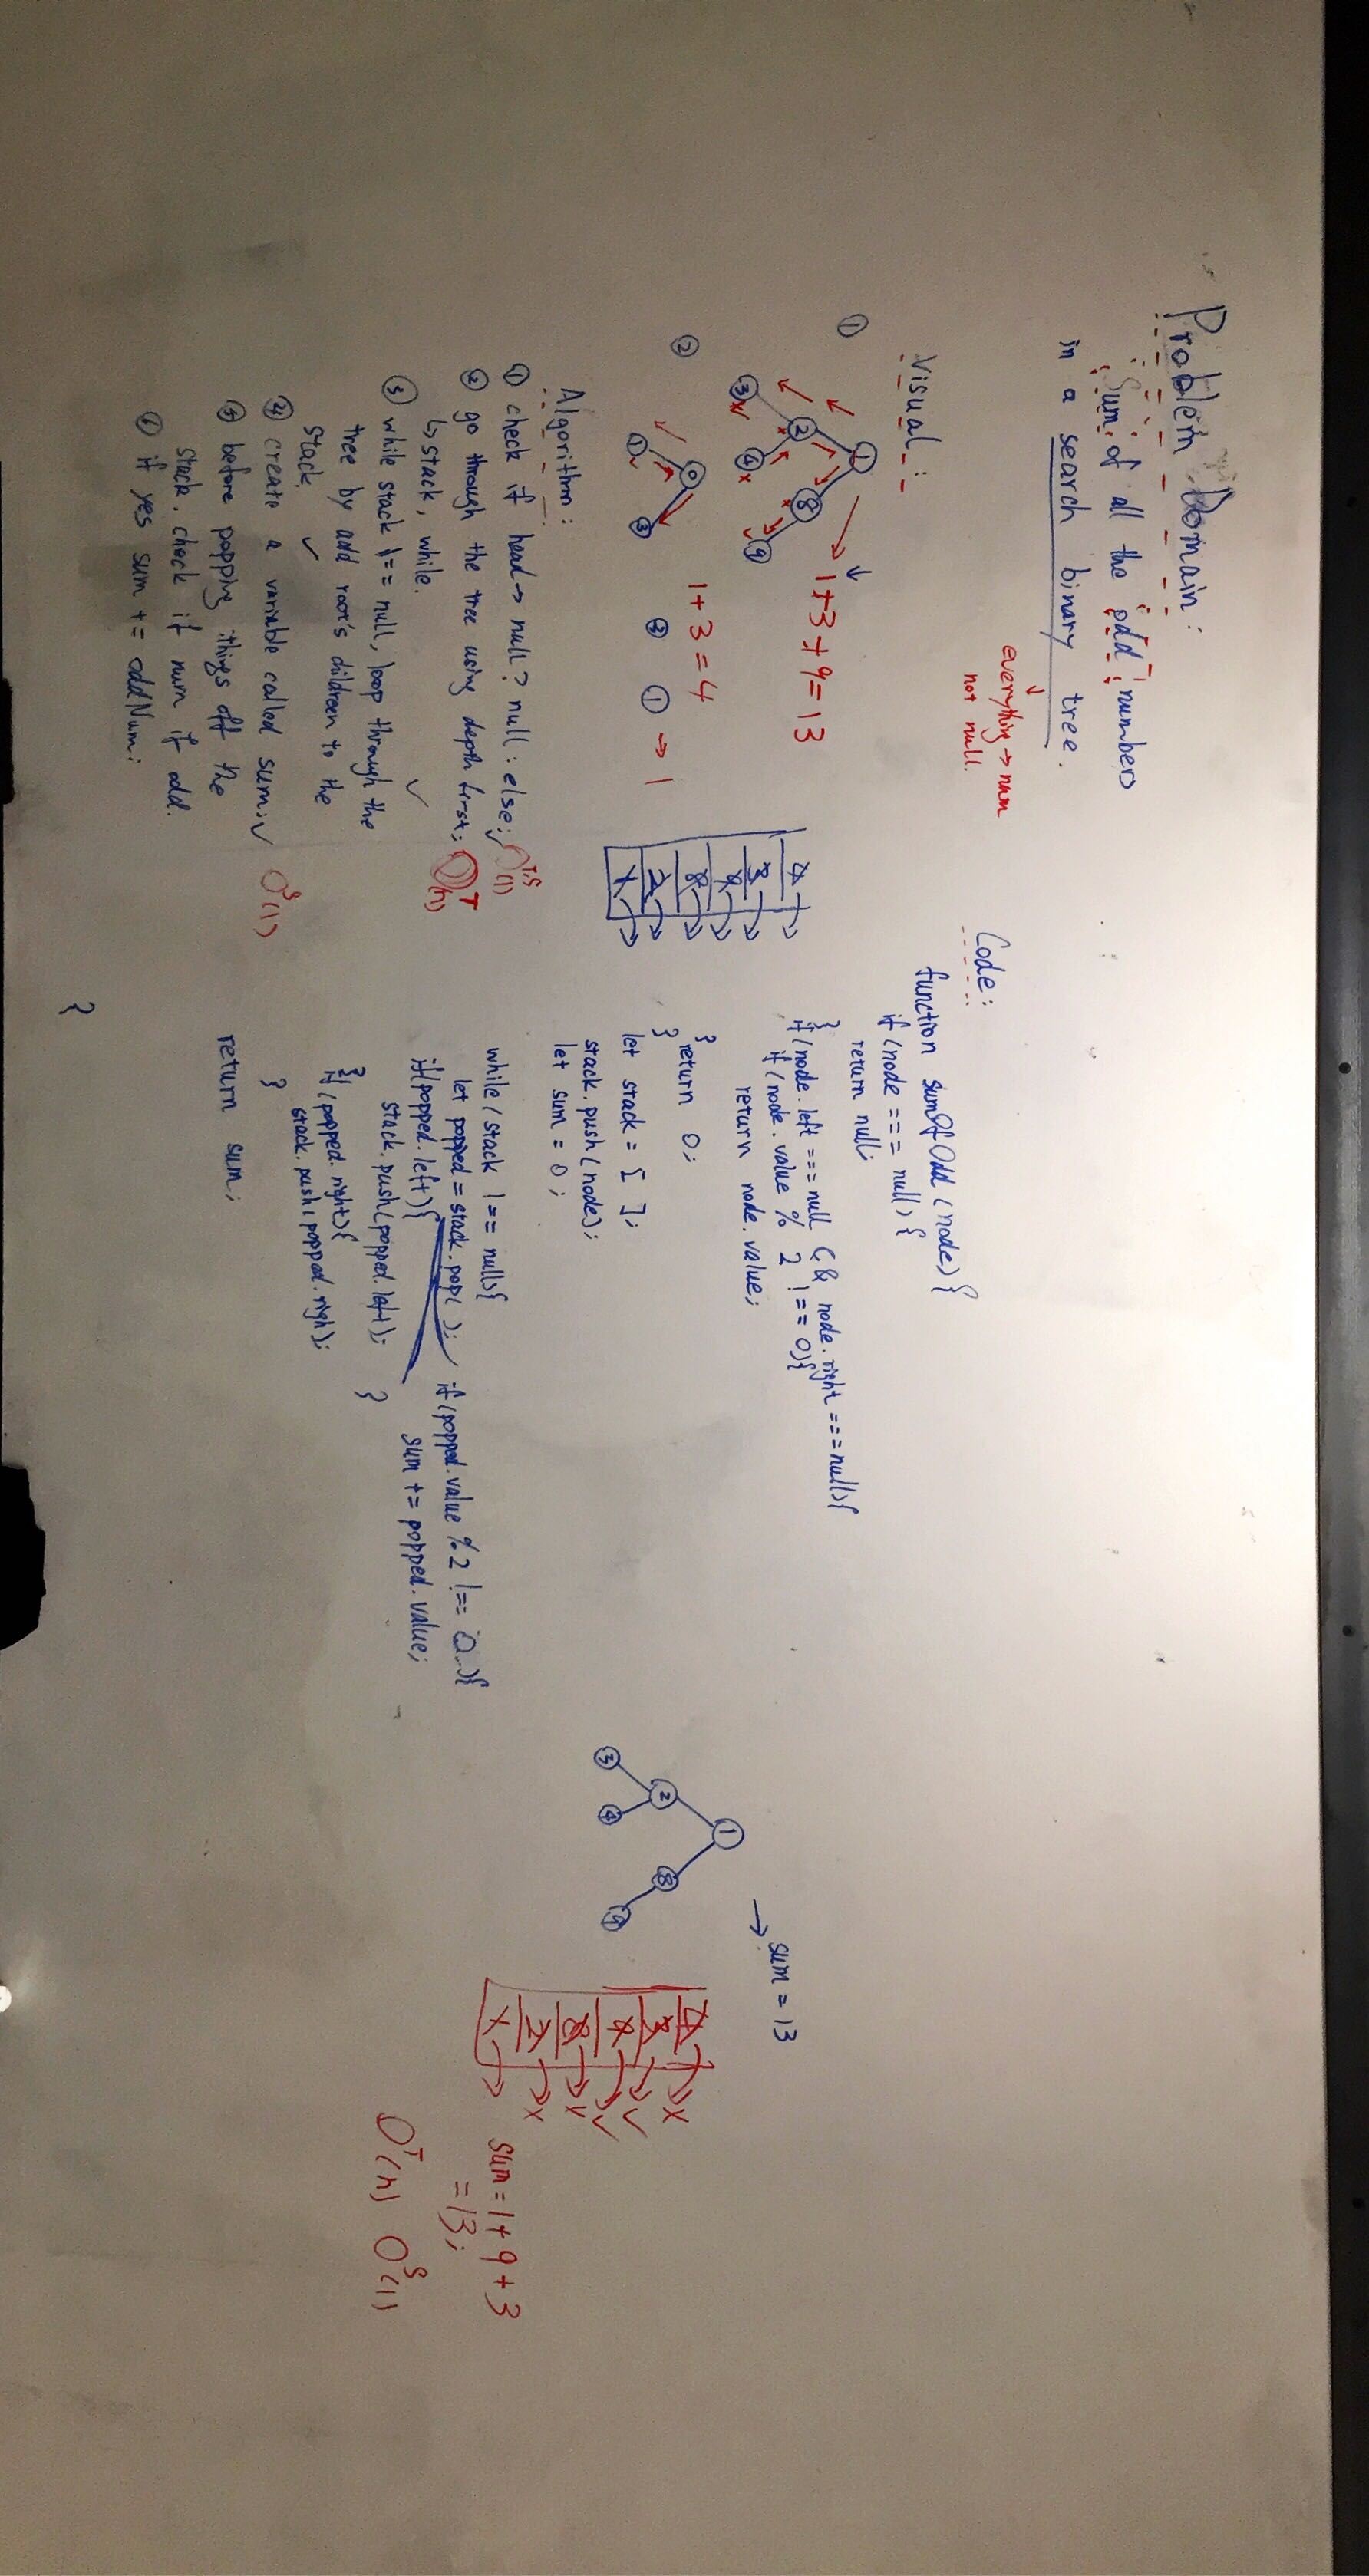 Problem Domain:
Sum of all the odd numbers
in a search binary tree.
everything → num
not null.
Visual:
①
1
2
8
3
4
9
1+3+9=13
②
0
1
3
1+3=4
③ ① → 1
4
3
4
8
2
1
Algorithm:
① check if head → null ? null : else;
O(1) T/S
② go through the tree using depth first;
O(n) T
↳ stack, while.
③ while stack !== null, loop through the
tree by add root's children to the
stack.
④ create a variable called sum;
O(1) S
⑤ before popping things off the
stack, check if num if odd.
⑥ if yes sum += oddNum;
Code:
function sumOfOdd (node) {
if (node === null) {
return null;
}
if (node.left === null && node.right === null) {
if (node.value % 2 !== 0) {
return node.value;
}
return 0;
}
let stack = [ ];
stack.push(node);
let sum = 0;
while (stack !== null) {
let popped = stack.pop( );
if (popped.value % 2 !== 0) {
sum += popped.value;
}
if (popped.left) {
stack.push(popped.left);
}
if (popped.right) {
stack.push(popped.righ);
}
}
return sum;
}
1
2
8
3
4
9
→ sum = 13
8
2
1
sum = 1+9+3
=13;
O(n) T O(1) S